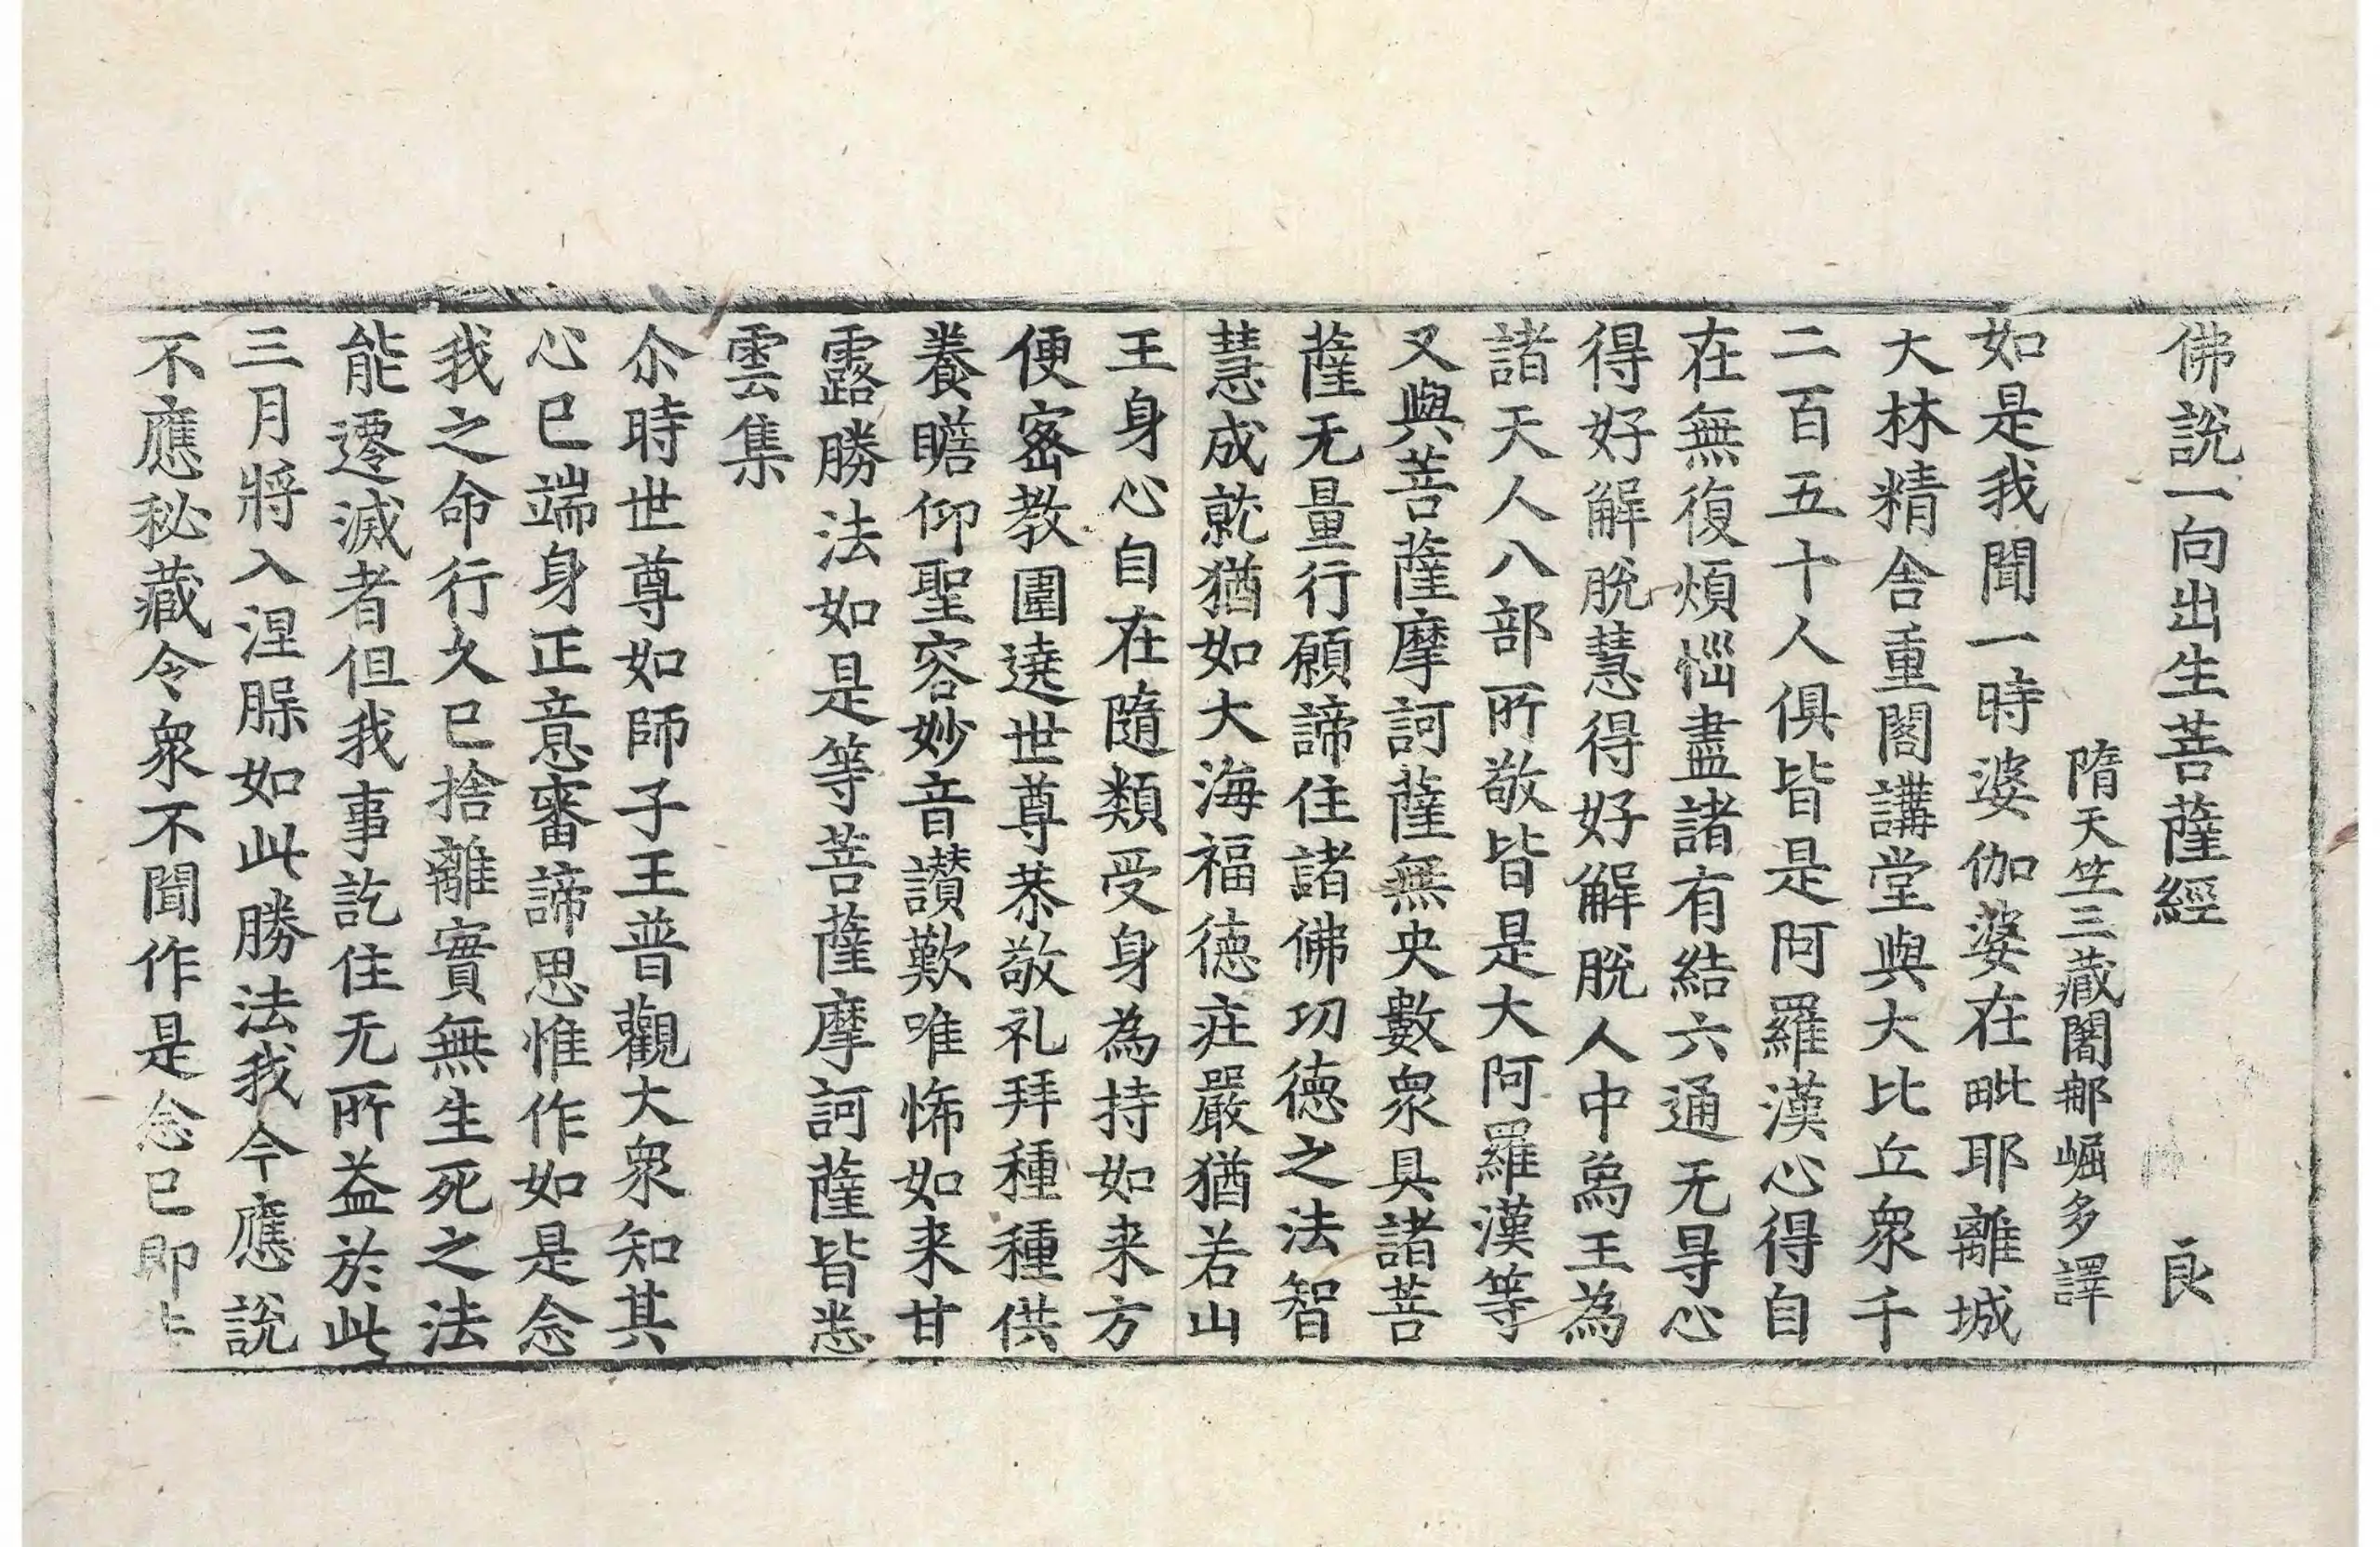 佛說一向出生菩薩經 良
隋天竺三藏闍那崛多譯
如是我聞一時婆伽婆在毗耶離城
大林精舍重閣講堂與大比丘衆千
二百五十人俱皆是阿羅漢心得自
在無復煩惱盡諸有結六通无㝵心
得好解脫慧得好解脫人中爲王為
諸天人八部所敬皆是大阿羅漢等
又與菩薩摩訶薩無央數衆具諸菩
薩无量行願諦住諸佛功德之法智
慧成就猶如大海福德莊嚴猶若山
王身心自在隨類受身為持如来方
便密教圍遶世尊恭敬礼拜種種供
養瞻仰聖容妙音讃歎唯悕如来甘
露勝法如是等菩薩摩訶薩皆悉
雲集
尒時世尊如師子王普觀大衆知其
心已端身正意審諦思惟作如是念
我之命行久已捨離實無生死之法
能遷滅者但我事訖住无所益於此
三月將入涅脲如此勝法我今應說
不應秘藏令衆不聞作是念已即